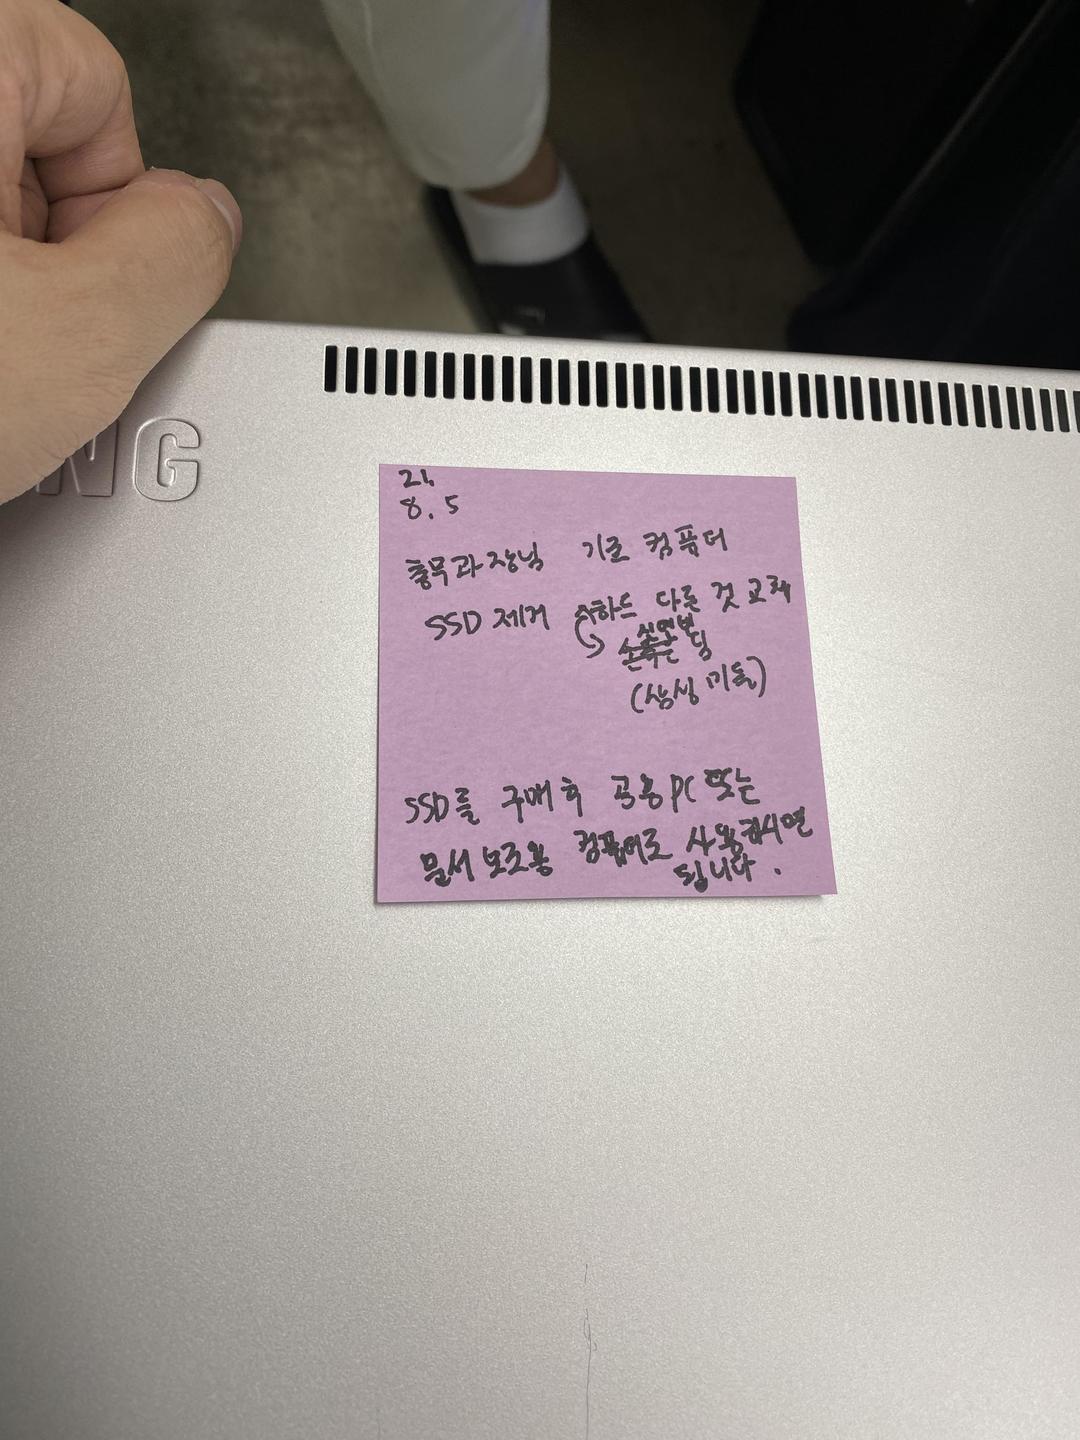 NG
21.
8.5
총무과장님 기존 컴퓨터
SSD 제거 하드 다른 것 교체
(삼성 미들)
SSD를 구매 후 공용 PC 또는
문서 보조용 컴퓨터로 사용하시면
됩니다.